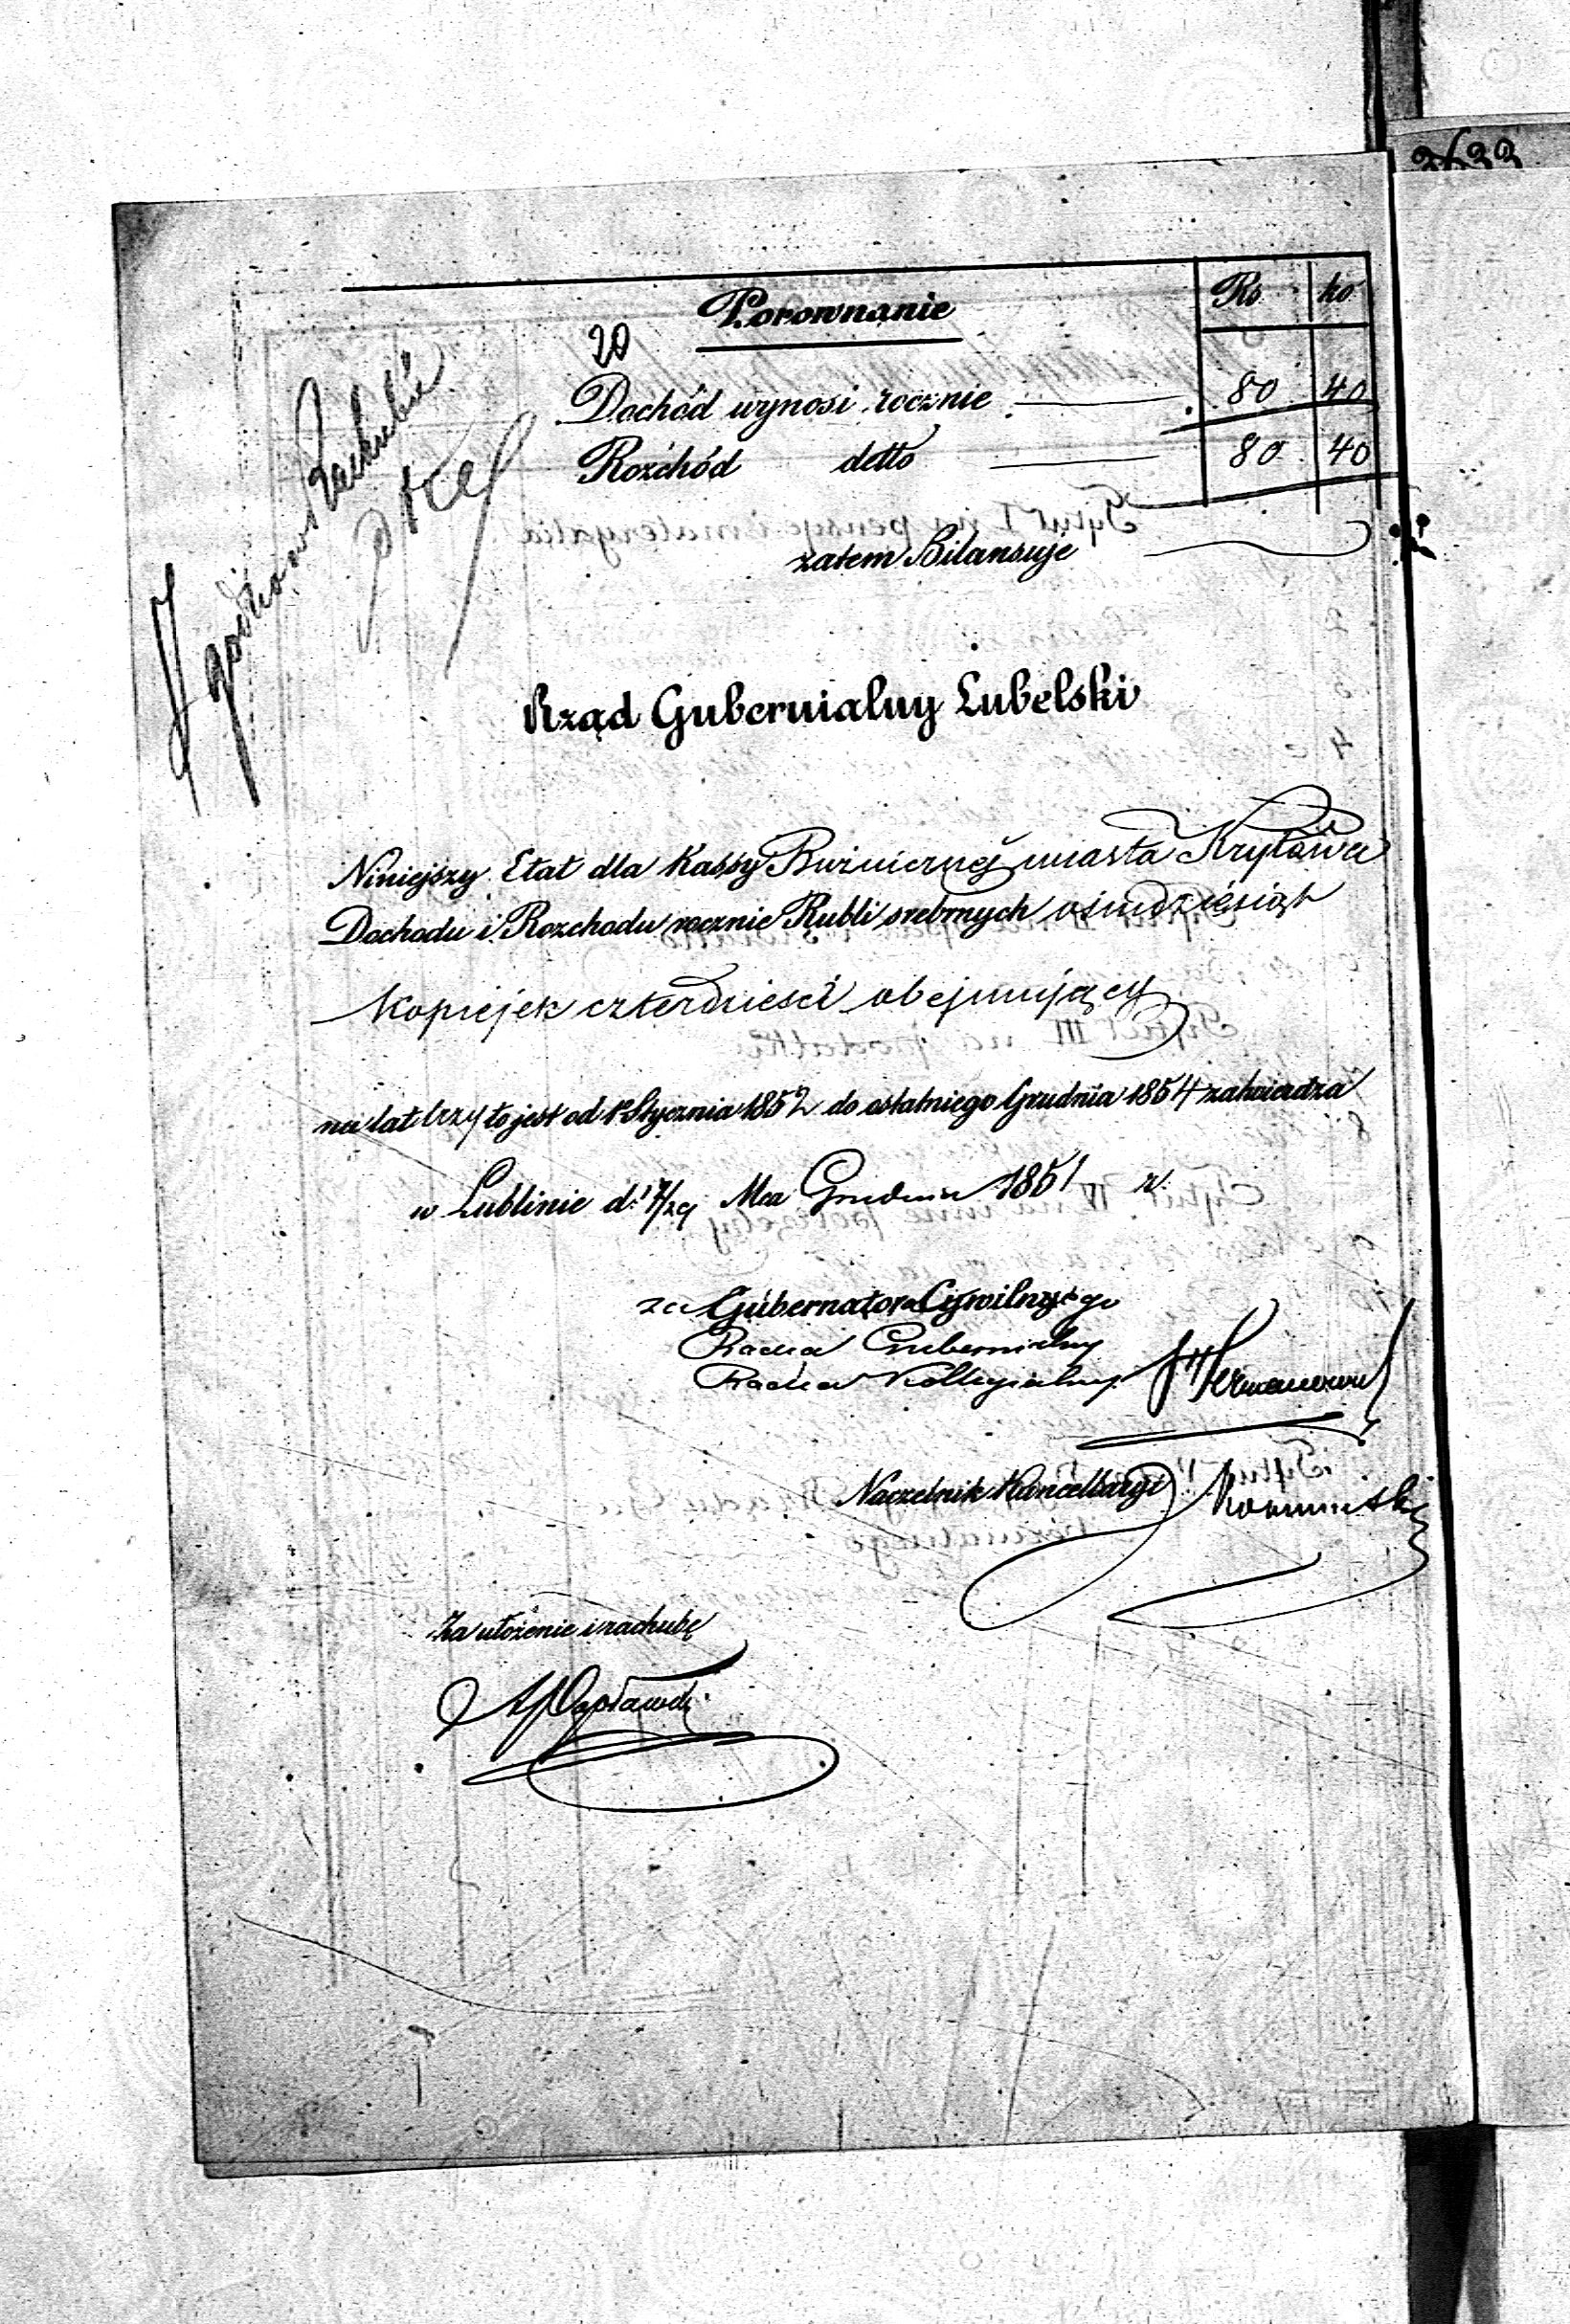 Porownanie
Rs ko
20
Dochód wynosi rocznie 80 40
Rozchód detto 80 40
zatem Bilansuje
Zgodno w Rachubie
Rząd Gubernialny Lubelski
Niniejszy Etat dla Kassy Bużniczney miasta Kryłowa
Dochodu i Rozchodu rocznie Rubli srebrnych ośmdziesiąt
Kopiejek czterdzieści obejmujący
na lat trzy to jest od 1 Stycznia 1852 do ostatniego Grudnia 1854 zatwierdza
w Lublinie d: 17/29 Mca Grudnia 1851 r.
za Gubernatora Cywilnego
Radca Gubernialny
Radca Kollegialny
Naczelnik Kancellaryi
Za ułożenie i rachubę
2622